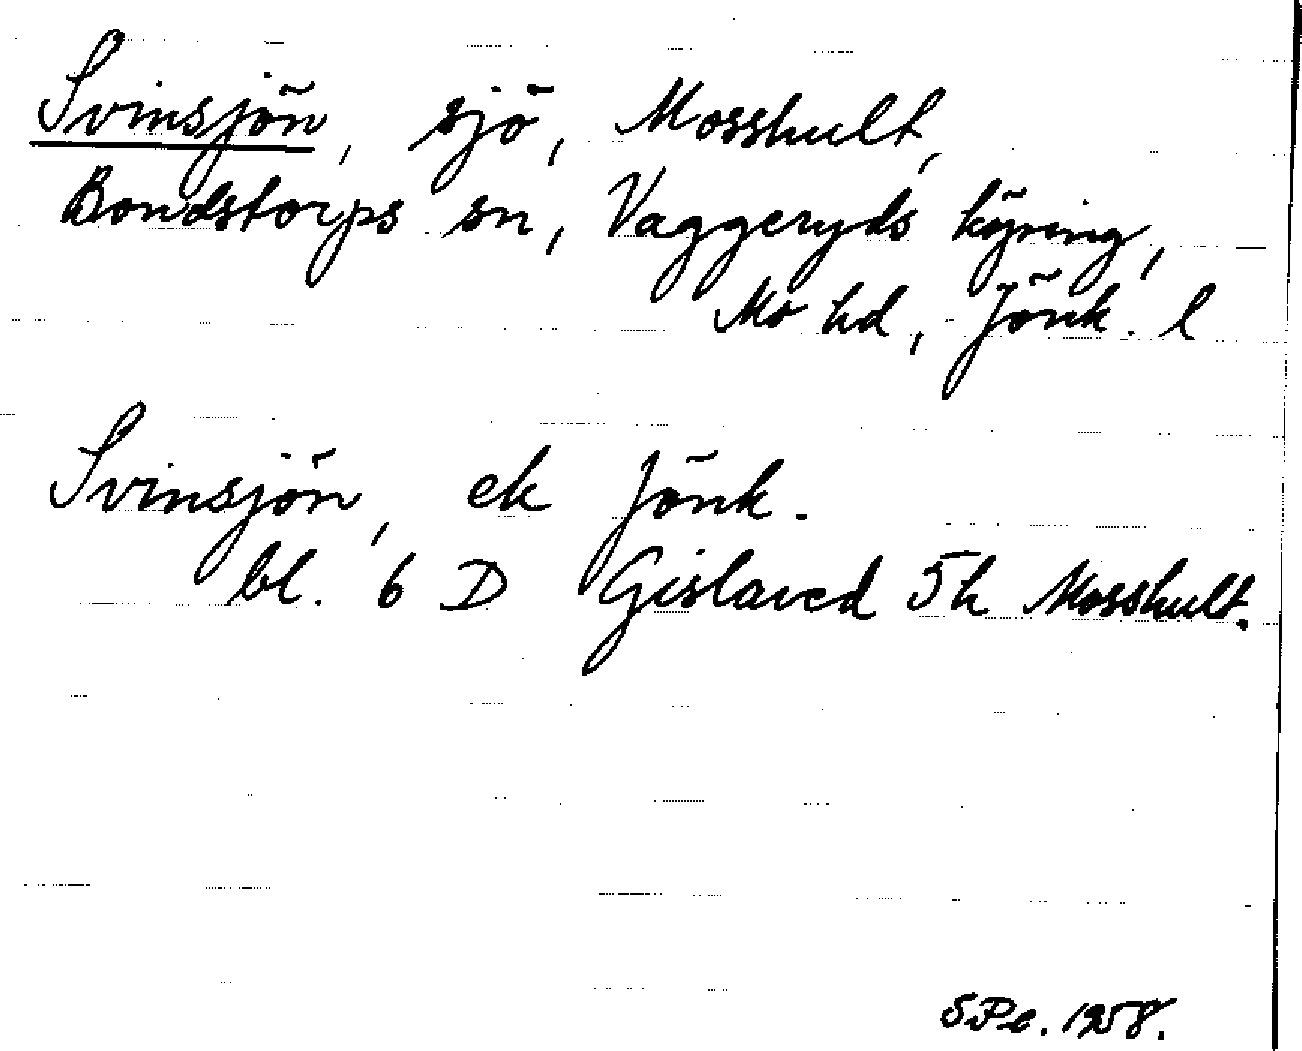 Svinsjön, sjö, Mosshult,
Bondstorps sn, Vaggeryds köping,
Mo hd, Jönk. l
Svinsjön, ek Jönk.
bl. 6 D Gislaved 5h Mosshult.
SPe. 1958.